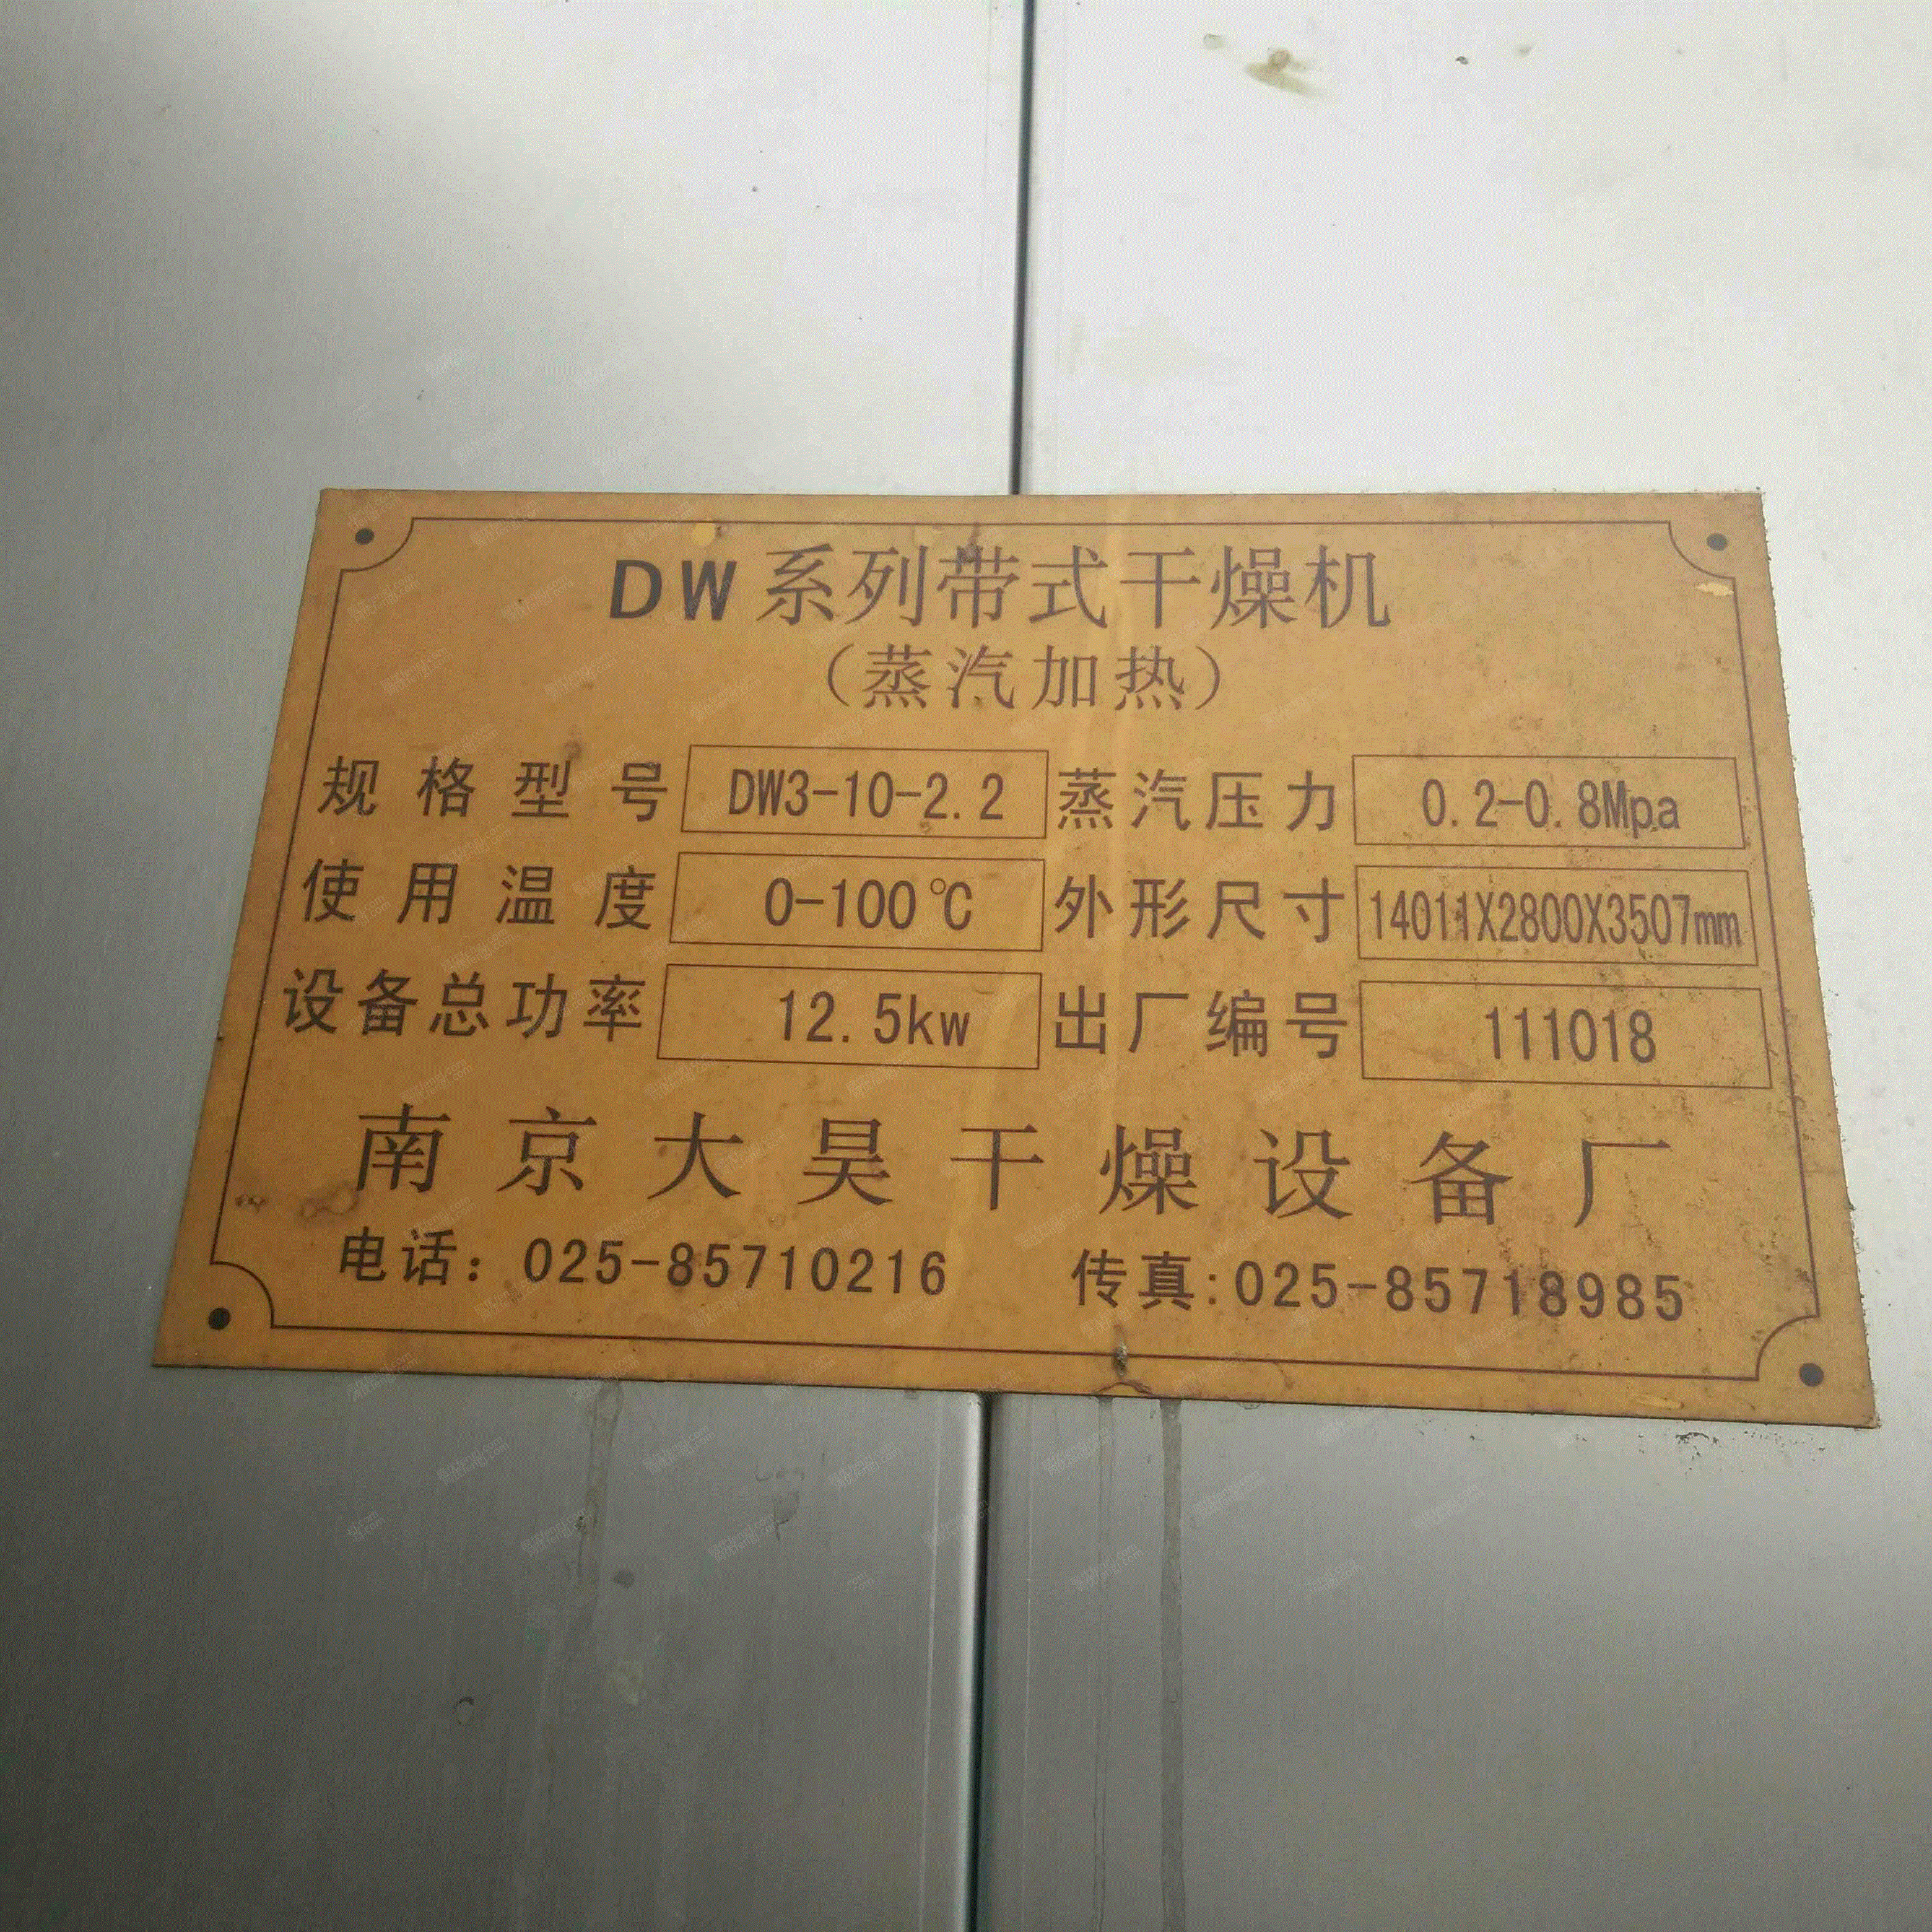 DW系列带式干燥机
（蒸汽加热）
规格型号 DW3-10-2.2 蒸汽压力 0.2-0.8Mpa
使用温度 0-100℃ 外形尺寸 14011X2800X3507mm
设备总功率 12.5kw 出厂编号 111018
南京大昊干燥设备厂
电话：025-85710216 传真:025-85718985